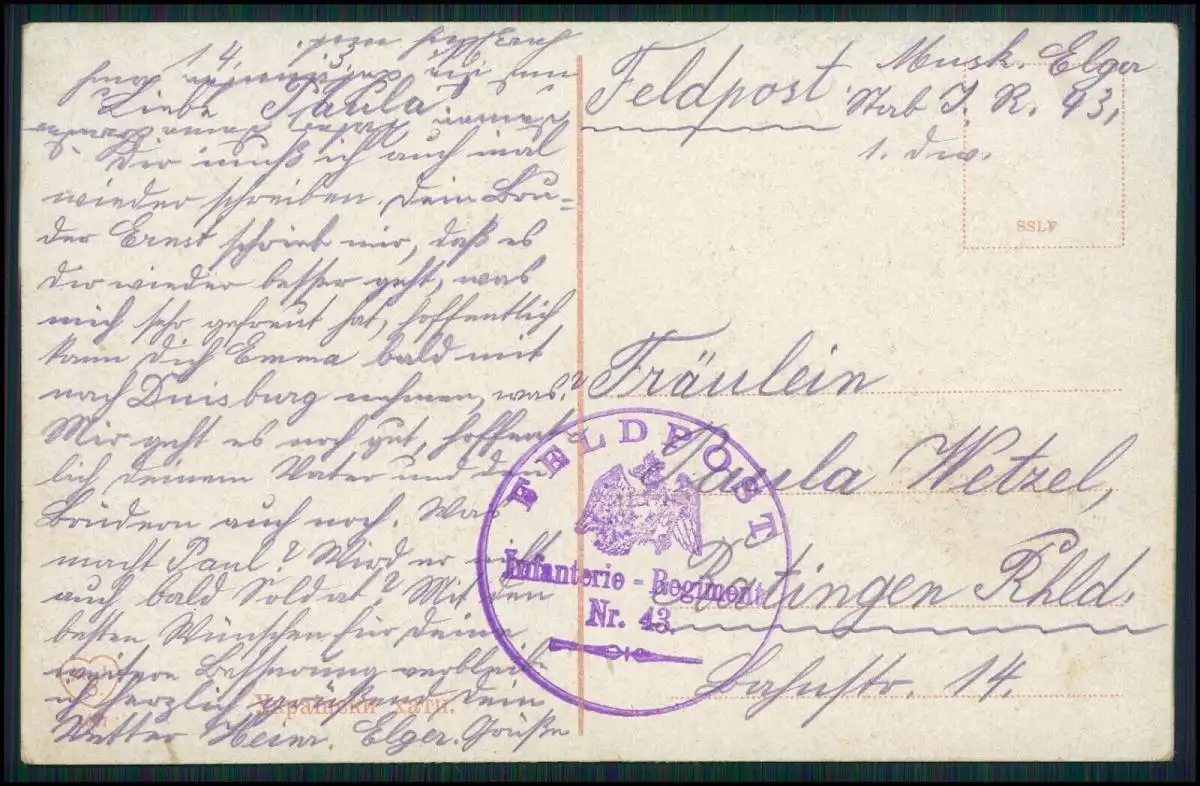 1. 4.
Liebe Paula
Dir muß ich auch mal
wieder schreiben. Dein Bru-
der Ernst schrieb mir, daß es
dir wieder besser geht, was
mich sehr gefreut hat, hoffentlich
kann dich Emma bald mit
nach Duisburg nehmen, was?
Mir geht es noch gut, hoffent-
lich deinem Vater und den
Brüdern auch noch. Was
macht Paul? Wird er nicht
auch bald Soldat? Mit den
besten Wünschen für deine
weitere Besserung verbleibe
ich herzlich grüßend dein
Vetter Heinr. Elger. Grüße
Feldpost
Musk. Elger
Stab I. R. 43,
1. Div.
SSLF
Fräulein
Paula Wetzel,
Ratingen Rhld.
Bahnstr. 14.
FELDPOST
Infanterie-Regiment
Nr. 43.
Українські хати.